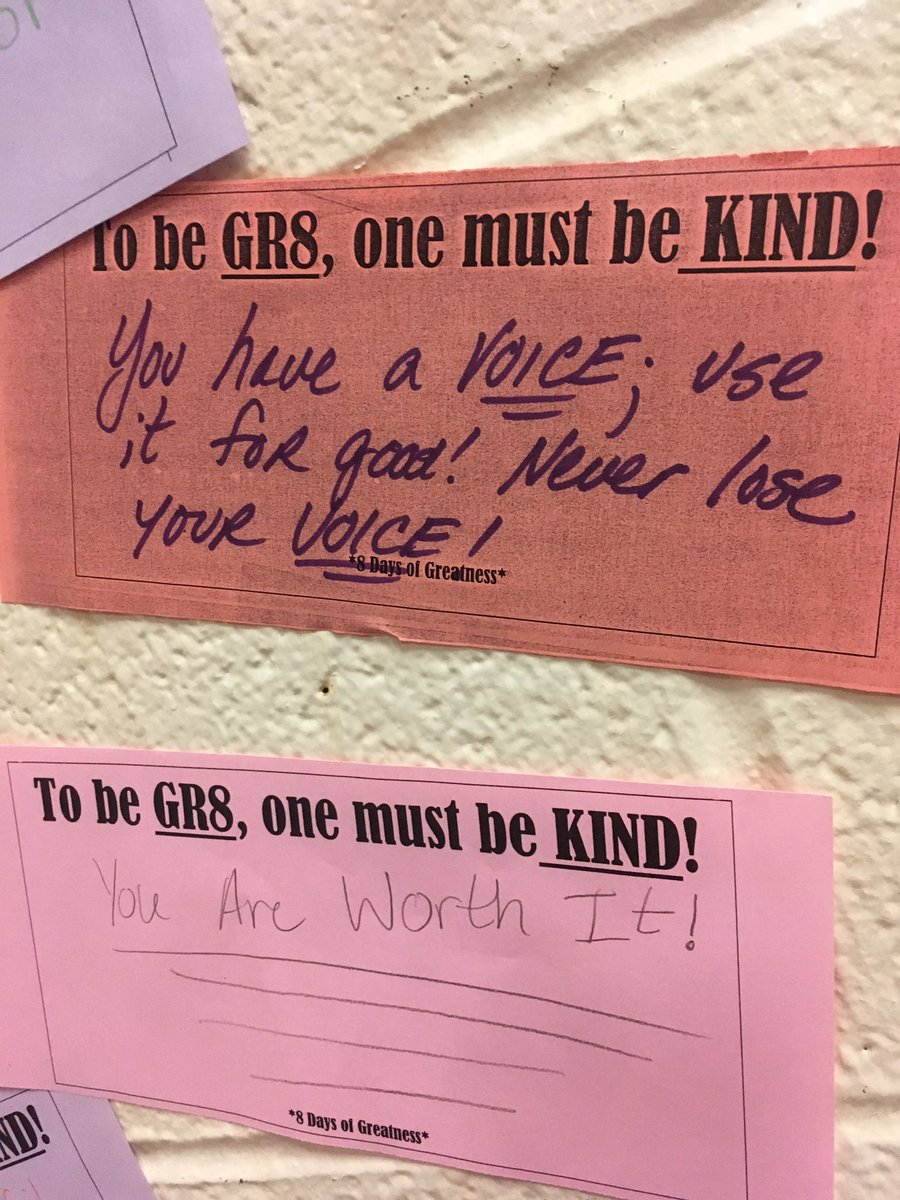 To be GR8, one must be KIND!
You have a VOICE; use
it for good! Never lose
your VOICE!
*8 Days of Greatness*
To be GR8, one must be KIND!
You Are Worth It!
*8 Days of Greatness*
ND!